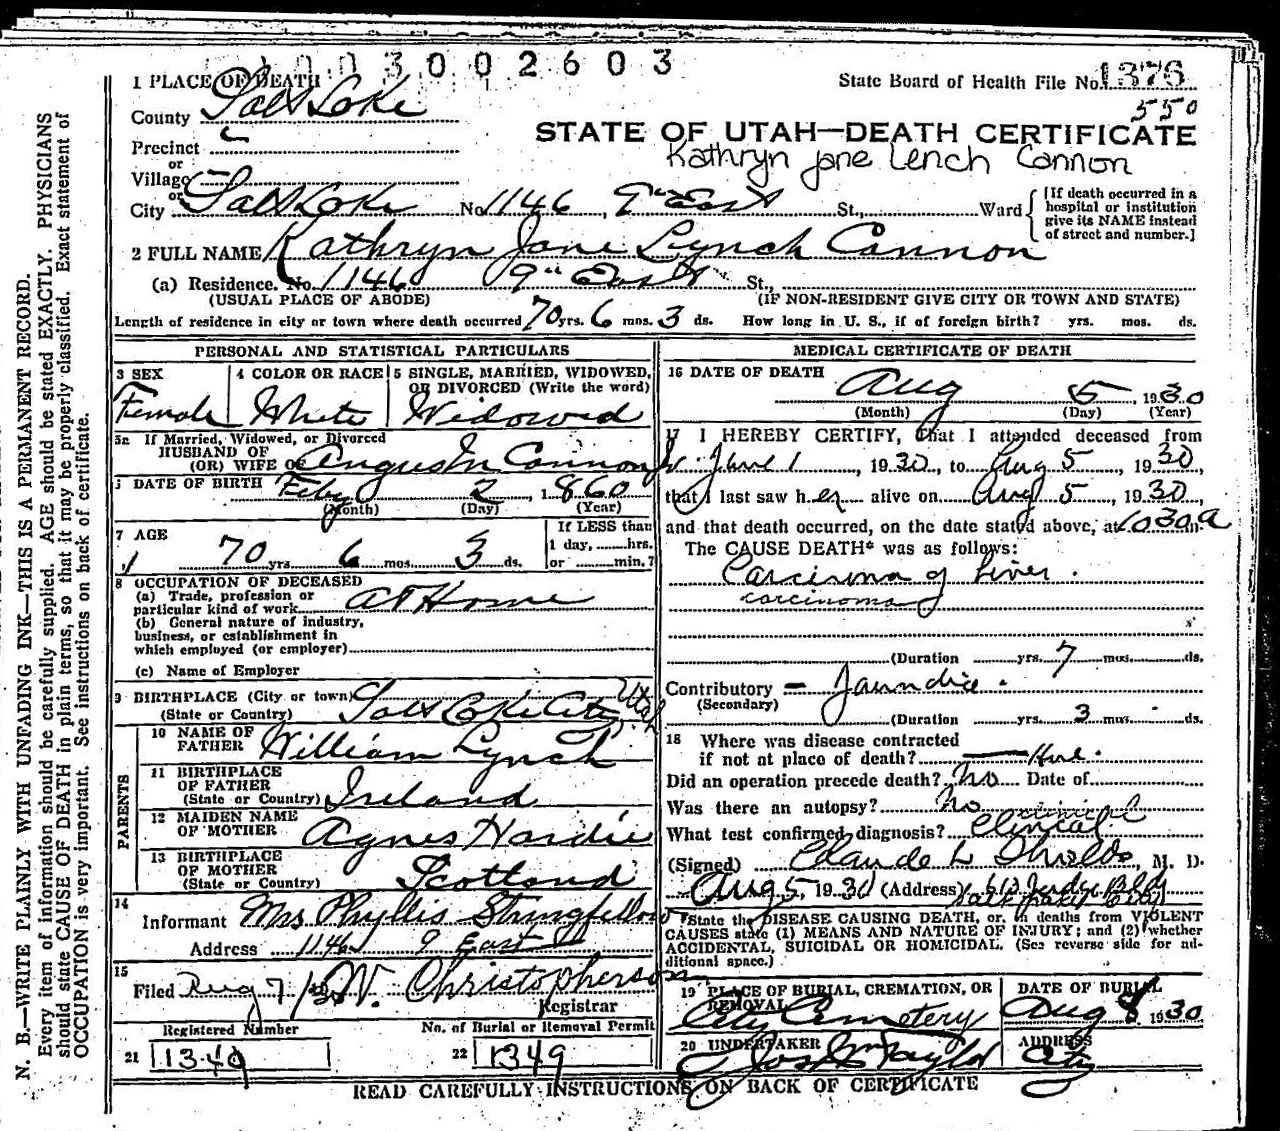 003002603
1 PLACE OF DEATH
State Board of Health File No. 1376
County Salt Lake
550
STATE OF UTAH—DEATH CERTIFICATE
Precinct
Kathryn Jane Lench Cannon
or
Village
or
City Salt Lake No. 1146, 9th East St., Ward
[If death occurred in a hospital or institution give its NAME instead of street and number.]
2 FULL NAME Kathryn Jane Lynch Cannon
(a) Residence. No. 1146 9th East St.,
(USUAL PLACE OF ABODE) (IF NON-RESIDENT GIVE CITY OR TOWN AND STATE)
Length of residence in city or town where death occurred 70 yrs. 6 mos. 3 ds. How long in U. S., if of foreign birth? yrs. mos. ds.
PERSONAL AND STATISTICAL PARTICULARS
3 SEX
Female
4 COLOR OR RACE
White
5 SINGLE, MARRIED, WIDOWED, OR DIVORCED (Write the word)
Widowed
5a If Married, Widowed, or Divorced
HUSBAND OF
(OR) WIFE OF Angus M Cannon Jr.
DATE OF BIRTH Feby 2, 1860
(Month) (Day) (Year)
7 AGE
70 yrs 6 mos. 3 ds.
If LESS than
1 day, hrs.
or min.?
8 OCCUPATION OF DECEASED
(a) Trade, profession or
particular kind of work At Home
(b) General nature of industry,
business, or establishment in
which employed (or employer)
(c) Name of Employer
9 BIRTHPLACE (City or town) Salt Lake City Utah
(State or Country)
PARENTS
10 NAME OF FATHER William Lynch
11 BIRTHPLACE OF FATHER
(State or Country) Ireland
12 MAIDEN NAME OF MOTHER Agnes Hardie
13 BIRTHPLACE OF MOTHER
(State or Country) Scotland
14
Informant Mrs Phyllis Stringfellow
Address 1146 9 East
15
Filed Aug 7 Christopherson
Registrar
Registered Number No. of Burial or Removal Permit
21 1349 22 1349
MEDICAL CERTIFICATE OF DEATH
16 DATE OF DEATH Aug 5, 1930
(Month) (Day) (Year)
17 I HEREBY CERTIFY, That I attended deceased from
June 1, 1930, to Aug 5, 1930
that I last saw her alive on Aug 5, 1930
and that death occurred, on the date stated above, at 1030a m.
The CAUSE DEATH* was as follows:
Carcinoma of Liver.
carcinoma
(Duration yrs. 7 mos. ds.
Contributory — Jaundice.
(Secondary)
(Duration yrs. 3 mos. ds.
18 Where was disease contracted
if not at place of death?
Did an operation precede death? No Date of
Was there an autopsy? No
clinical
What test confirmed diagnosis? Clinical
(Signed) Claude L Shields, M. D.
Aug 5, 1930 (Address) 610 Judge Bldg
Salt Lake City
*State the DISEASE CAUSING DEATH, or, in deaths from VIOLENT
CAUSES state (1) MEANS AND NATURE OF INJURY; and (2) whether
ACCIDENTAL, SUICIDAL OR HOMICIDAL. (See reverse side for ad-
ditional space.)
19 PLACE OF BURIAL, CREMATION, OR REMOVAL
City Cemetery
DATE OF BURIAL
Aug 8, 1930
20 UNDERTAKER
Jos E Taylor
ADDRESS
City
READ CAREFULLY INSTRUCTIONS ON BACK OF CERTIFICATE
N. B.—WRITE PLAINLY WITH UNFADING INK—THIS IS A PERMANENT RECORD.
Every item of information should be carefully supplied. AGE should be stated EXACTLY. PHYSICIANS
should state CAUSE OF DEATH in plain terms, so that it may be properly classified. Exact statement of
OCCUPATION is very important. See instructions on back of certificate.